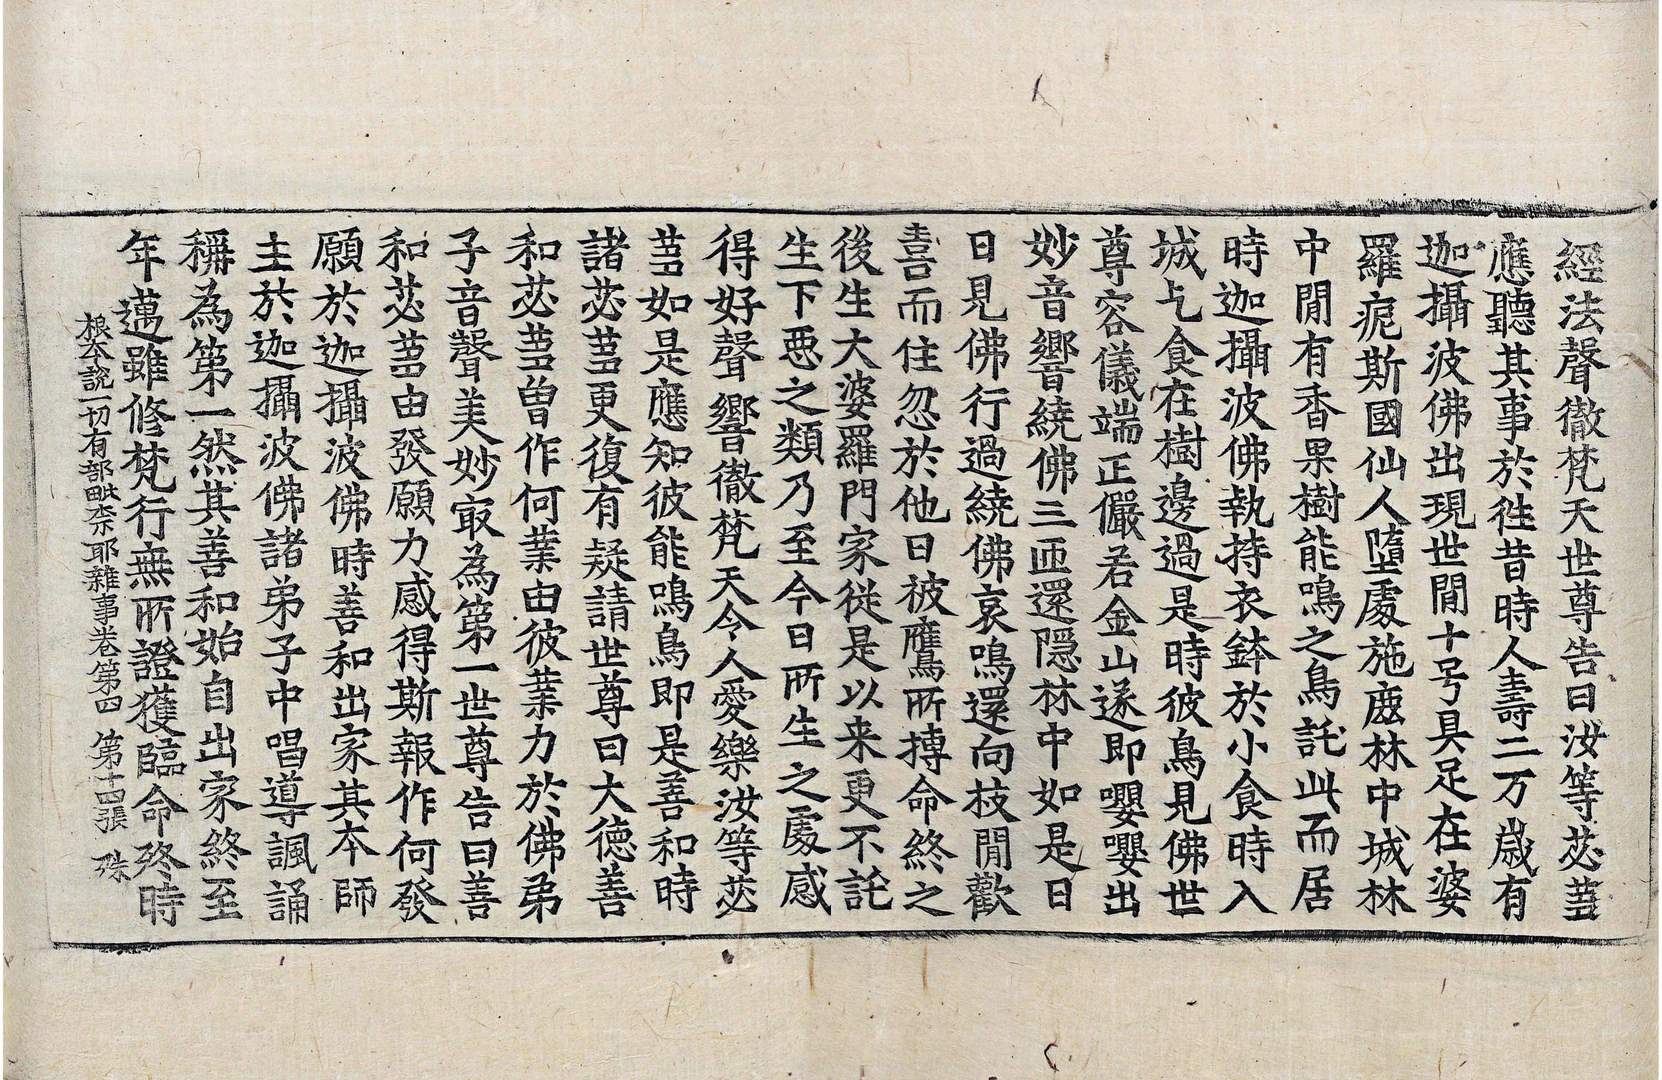 經法聲徹梵天世尊告曰汝等苾蒭
應聽其事於往昔時人壽二万歲有
迦攝波佛出現世間十号具足在婆
羅痆斯國仙人墮處施鹿林中城林
中閒有香果樹能鳴之鳥託此而居
時迦攝波佛執持衣鉢於小食時入
城乞食在樹邊過是時彼鳥見佛世
尊容儀端正儼若金山遂即嚶嚶出
妙音響繞佛三匝還隱林中如是日
日見佛行過繞佛哀鳴還向枝閒歡
喜而住忽於他日被鷹所搏命終之
後生大婆羅門家從是以来更不託
生下惡之類乃至今日所生之處感
得好聲響徹梵天令人愛樂汝等苾
蒭如是應知彼能鳴鳥即是善和時
諸苾蒭更復有疑請世尊曰大德善
和苾蒭曾作何業由彼業力於佛弟
子音聲美妙㝡為第一世尊告曰善
和苾蒭由發願力感得斯報作何發
願於迦攝波佛時善和出家其本師
主於迦攝波佛諸弟子中唱導諷誦
稱為第一然其善和始自出家終至
年邁雖修梵行無所證獲臨命終時
根本說一切有部毗柰耶雜事卷第四 第十四張 珠